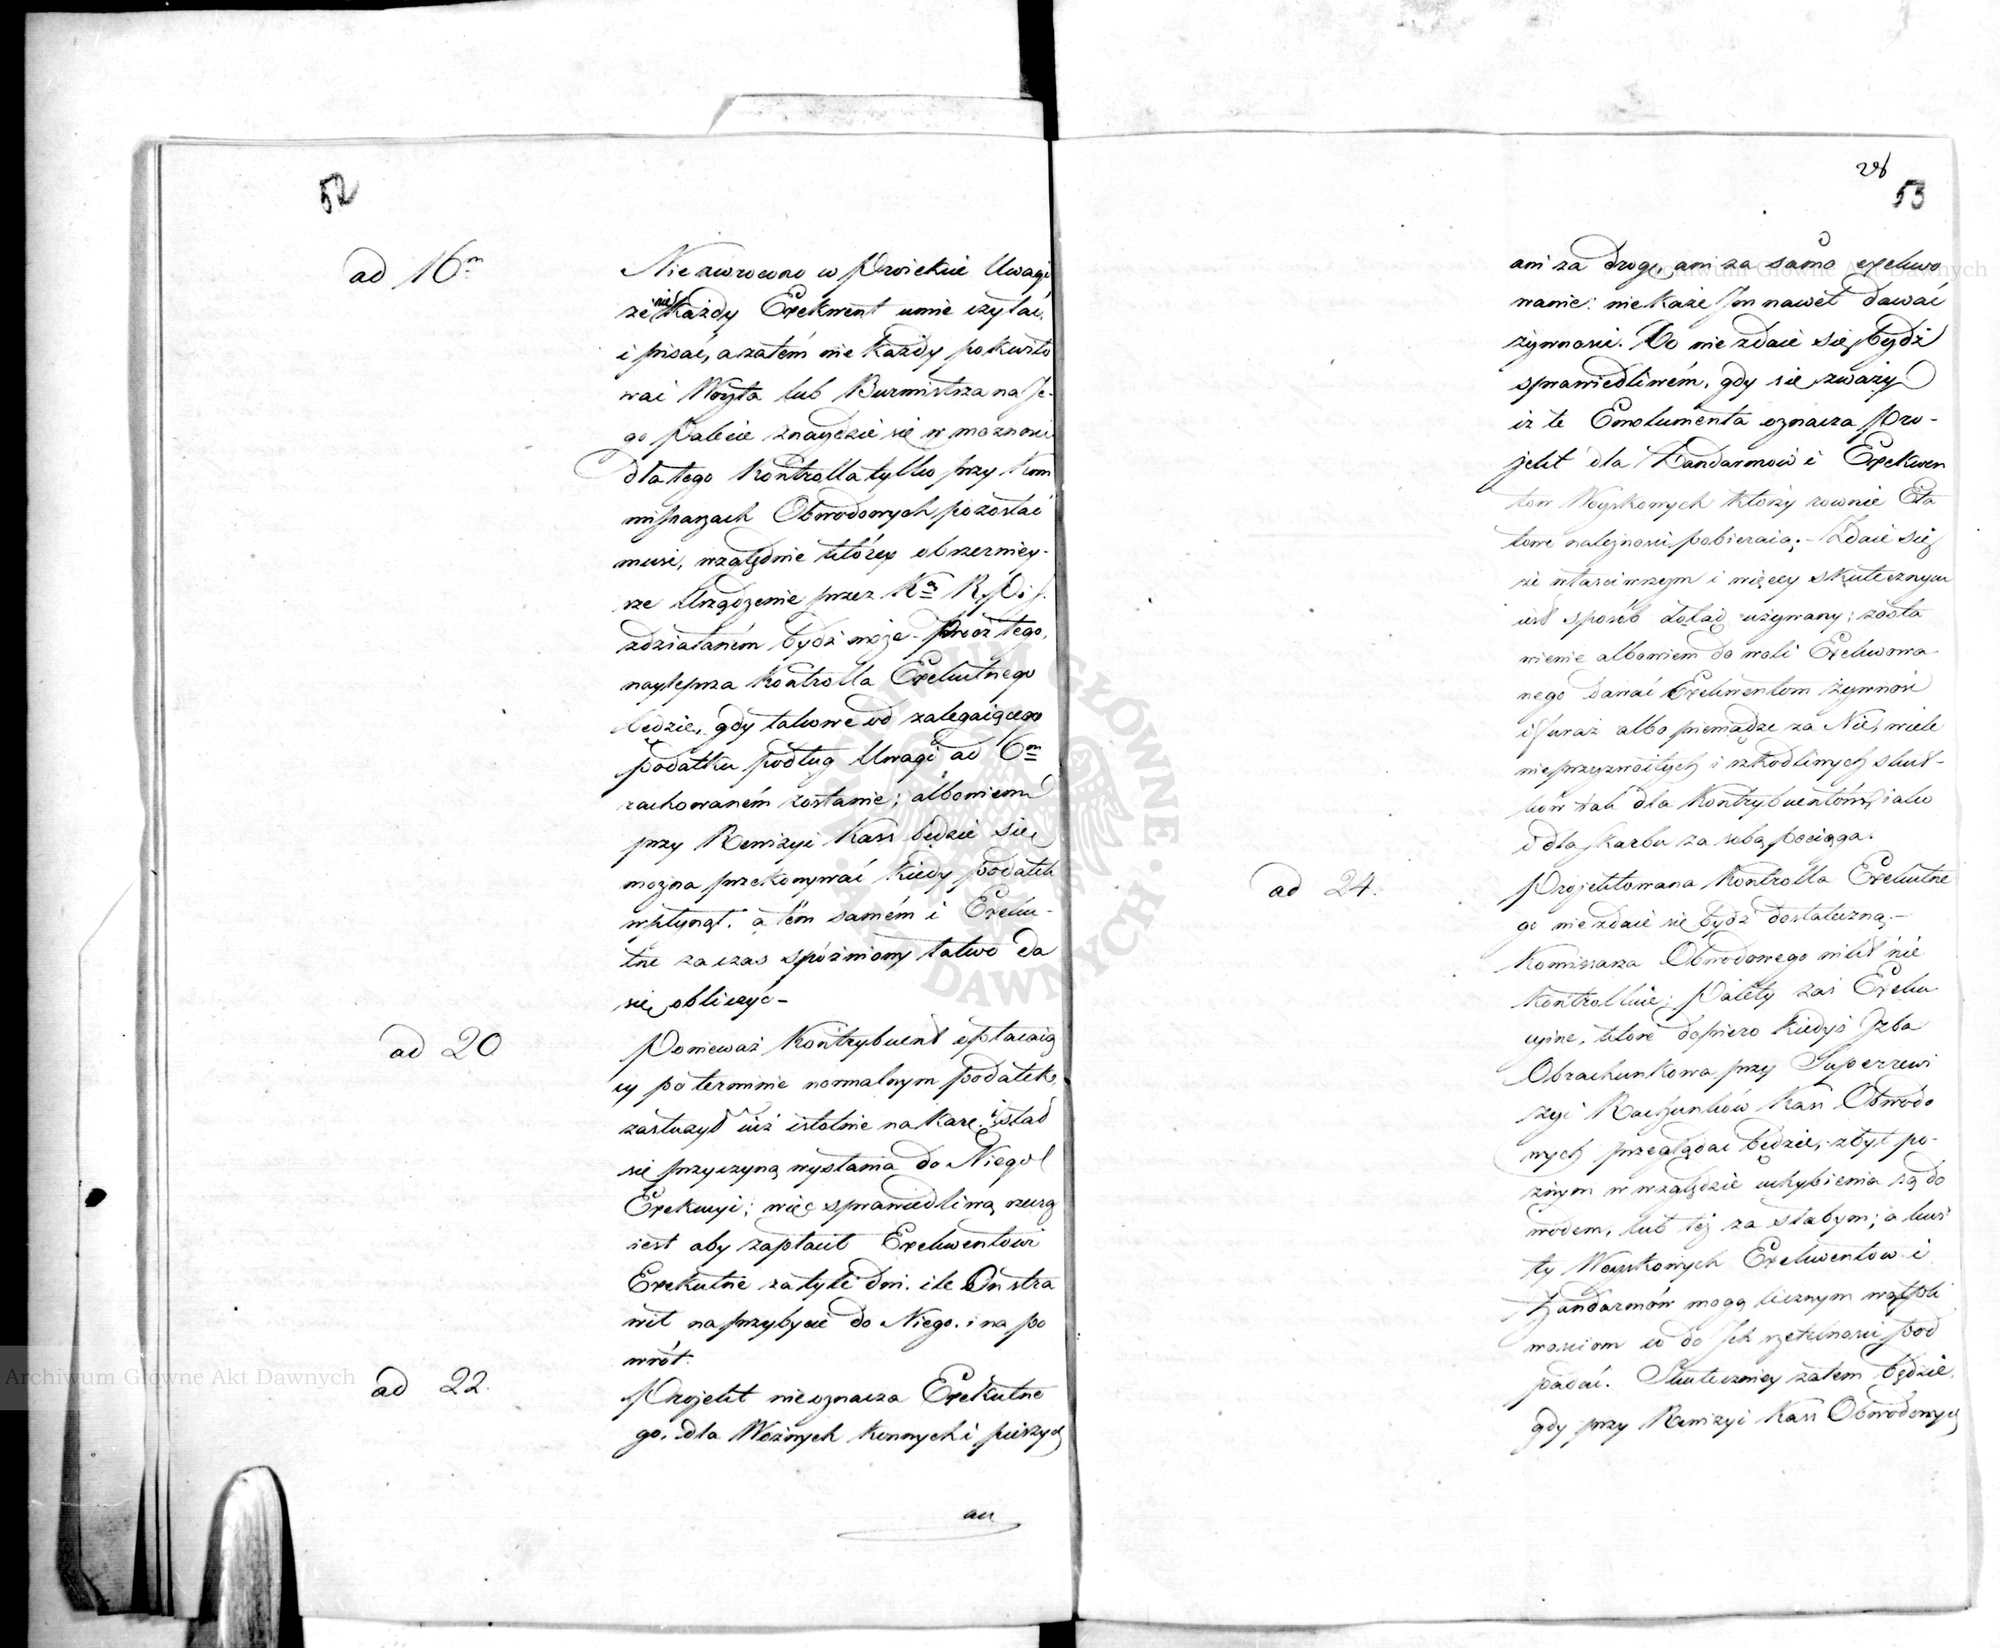 52
ad 16m
Nie zwrocono w Proiekcie Uwagi
że nie każdy Exekwent umie czytać
i pisać, a zatem nie każdy pokwito
wać Woyta lub Burmistrza na Je-
go Palecie znaydzie się w możności
dla tego Kontrolla tylko przy Kom
missarzach Obwodowych pozostać
musi, względnie którey obszerniey-
sze Urządzenie przez
zdziałaném bydź może. Prócz tego,
naylepsza Kontrolla Exekutnego
będzie, gdy takowe od zalegaiącego
podatku podług Uwagi ad 6m
rachowaném zostanie; albowiem
przy Rewizyi Kass będzie się
można przekonywać kiedy podatek
wpłynął, a tém samém i Exeku-
tne za czas spóźniony łatwo da
się obliczyć –
ad 20
Ponieważ Kontrybuent opłacaią
cy po terminie normalnym podatek,
zasłużył iuż istotnie na karę, i stał
się przyczyną wysłania do Niego
Exekucyi; więc sprawiedliwą rzeczą
iest aby zapłacił Exekwentowi
Exekutne za tyle dni, ile On stra
wił na przybycie do Niego, i na po
wrót.
ad 22.
Projekt nieoznacza Exekutne
go, dla Woźnych konnych i pieszych
ani
53
ani za drogę, ani za samo exekwo
wanie: niekaże Jm nawet dawać
żywności. To nie zdaie się bydź
sprawiedliwém, gdy się zważy
iż te Emolumenta oznacza Pro-
jekt dla Żandarmów i Exekwen
tów Woyskowych którzy równie Eta
towe należności pobieraią; – Zdaie się
że właściwszym i więcey skutecznym
iest sposób dotąd używany; zosta
wienie albowiem do woli Exekwowa
nego dawać Exekwentom żywność
i furaż albo pieniądze za Nie, wiele
nieprzyzwoitych i szkodliwych skut-
ków tak dla Kontrybuentów iako
i dla Skarbu za sobą pociąga.
ad 24.
Projektowana Kontrolla Exekutne
go nie zdaie się bydź dostateczną. –
Kommissarza Obwodowego nikt nie
kontrolluie; Palety zaś Exeku
cyine, które dopiero kiedyś Izba
Obrachunkowa przy Superrewi
zyi Rachunków Kass Obwodo
wych przeglądać będzie, zbyt po-
znym w względzie uchybienia są do
wodem, lub też za słabym; a kwi
ty Woyskowych Exekwentów i
Żandarmów mogą licznym wątpli
wościom co do Jch rzetelności pod
padać. Skuteczniey zatem będzie,
gdy przy Rewizyi Kass Obwodowych